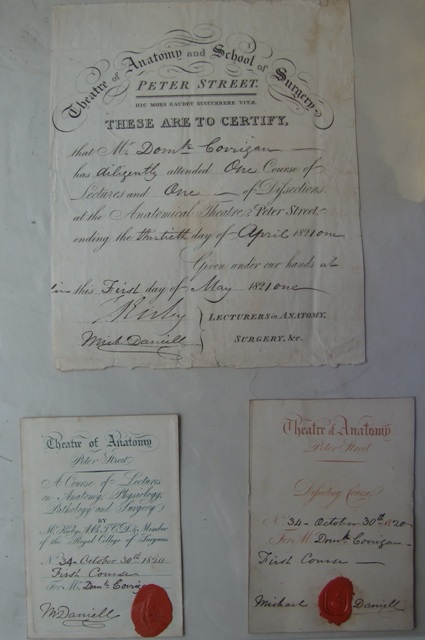 Theatre of Anatomy and School of Surgery
PETER STREET.
HIC MORS GAUDET SUCCURRERE VITÆ.
THESE ARE TO CERTIFY,
that Mr. Domk. Corrigan
has diligently attended One Course of
Lectures and One of Dissections
at the Anatomical Theatre, Peter Street,
ending the thirtieth day of April 1821 one
Given under our hands at
this First day of May 1821 one
Kirby
Mich Daniell
LECTURERS in ANATOMY,
SURGERY, &c.
Theatre of Anatomy
Peter Street,
A Course of Lectures
on Anatomy, Physiology,
Pathology and Surgery
BY
Mr. Kirby, A.B.T.C.D. & Member
of the Royal College of Surgeons
No. 34 - October 30th 1820
First Course
For Mr. Domk Corrig
M Daniell
Theatre of Anatomy
Peter Street
Dissecting Course,
No. 34 - October 30th 1820
For Mr. Domk Corrigan
First Course
Michael Daniell